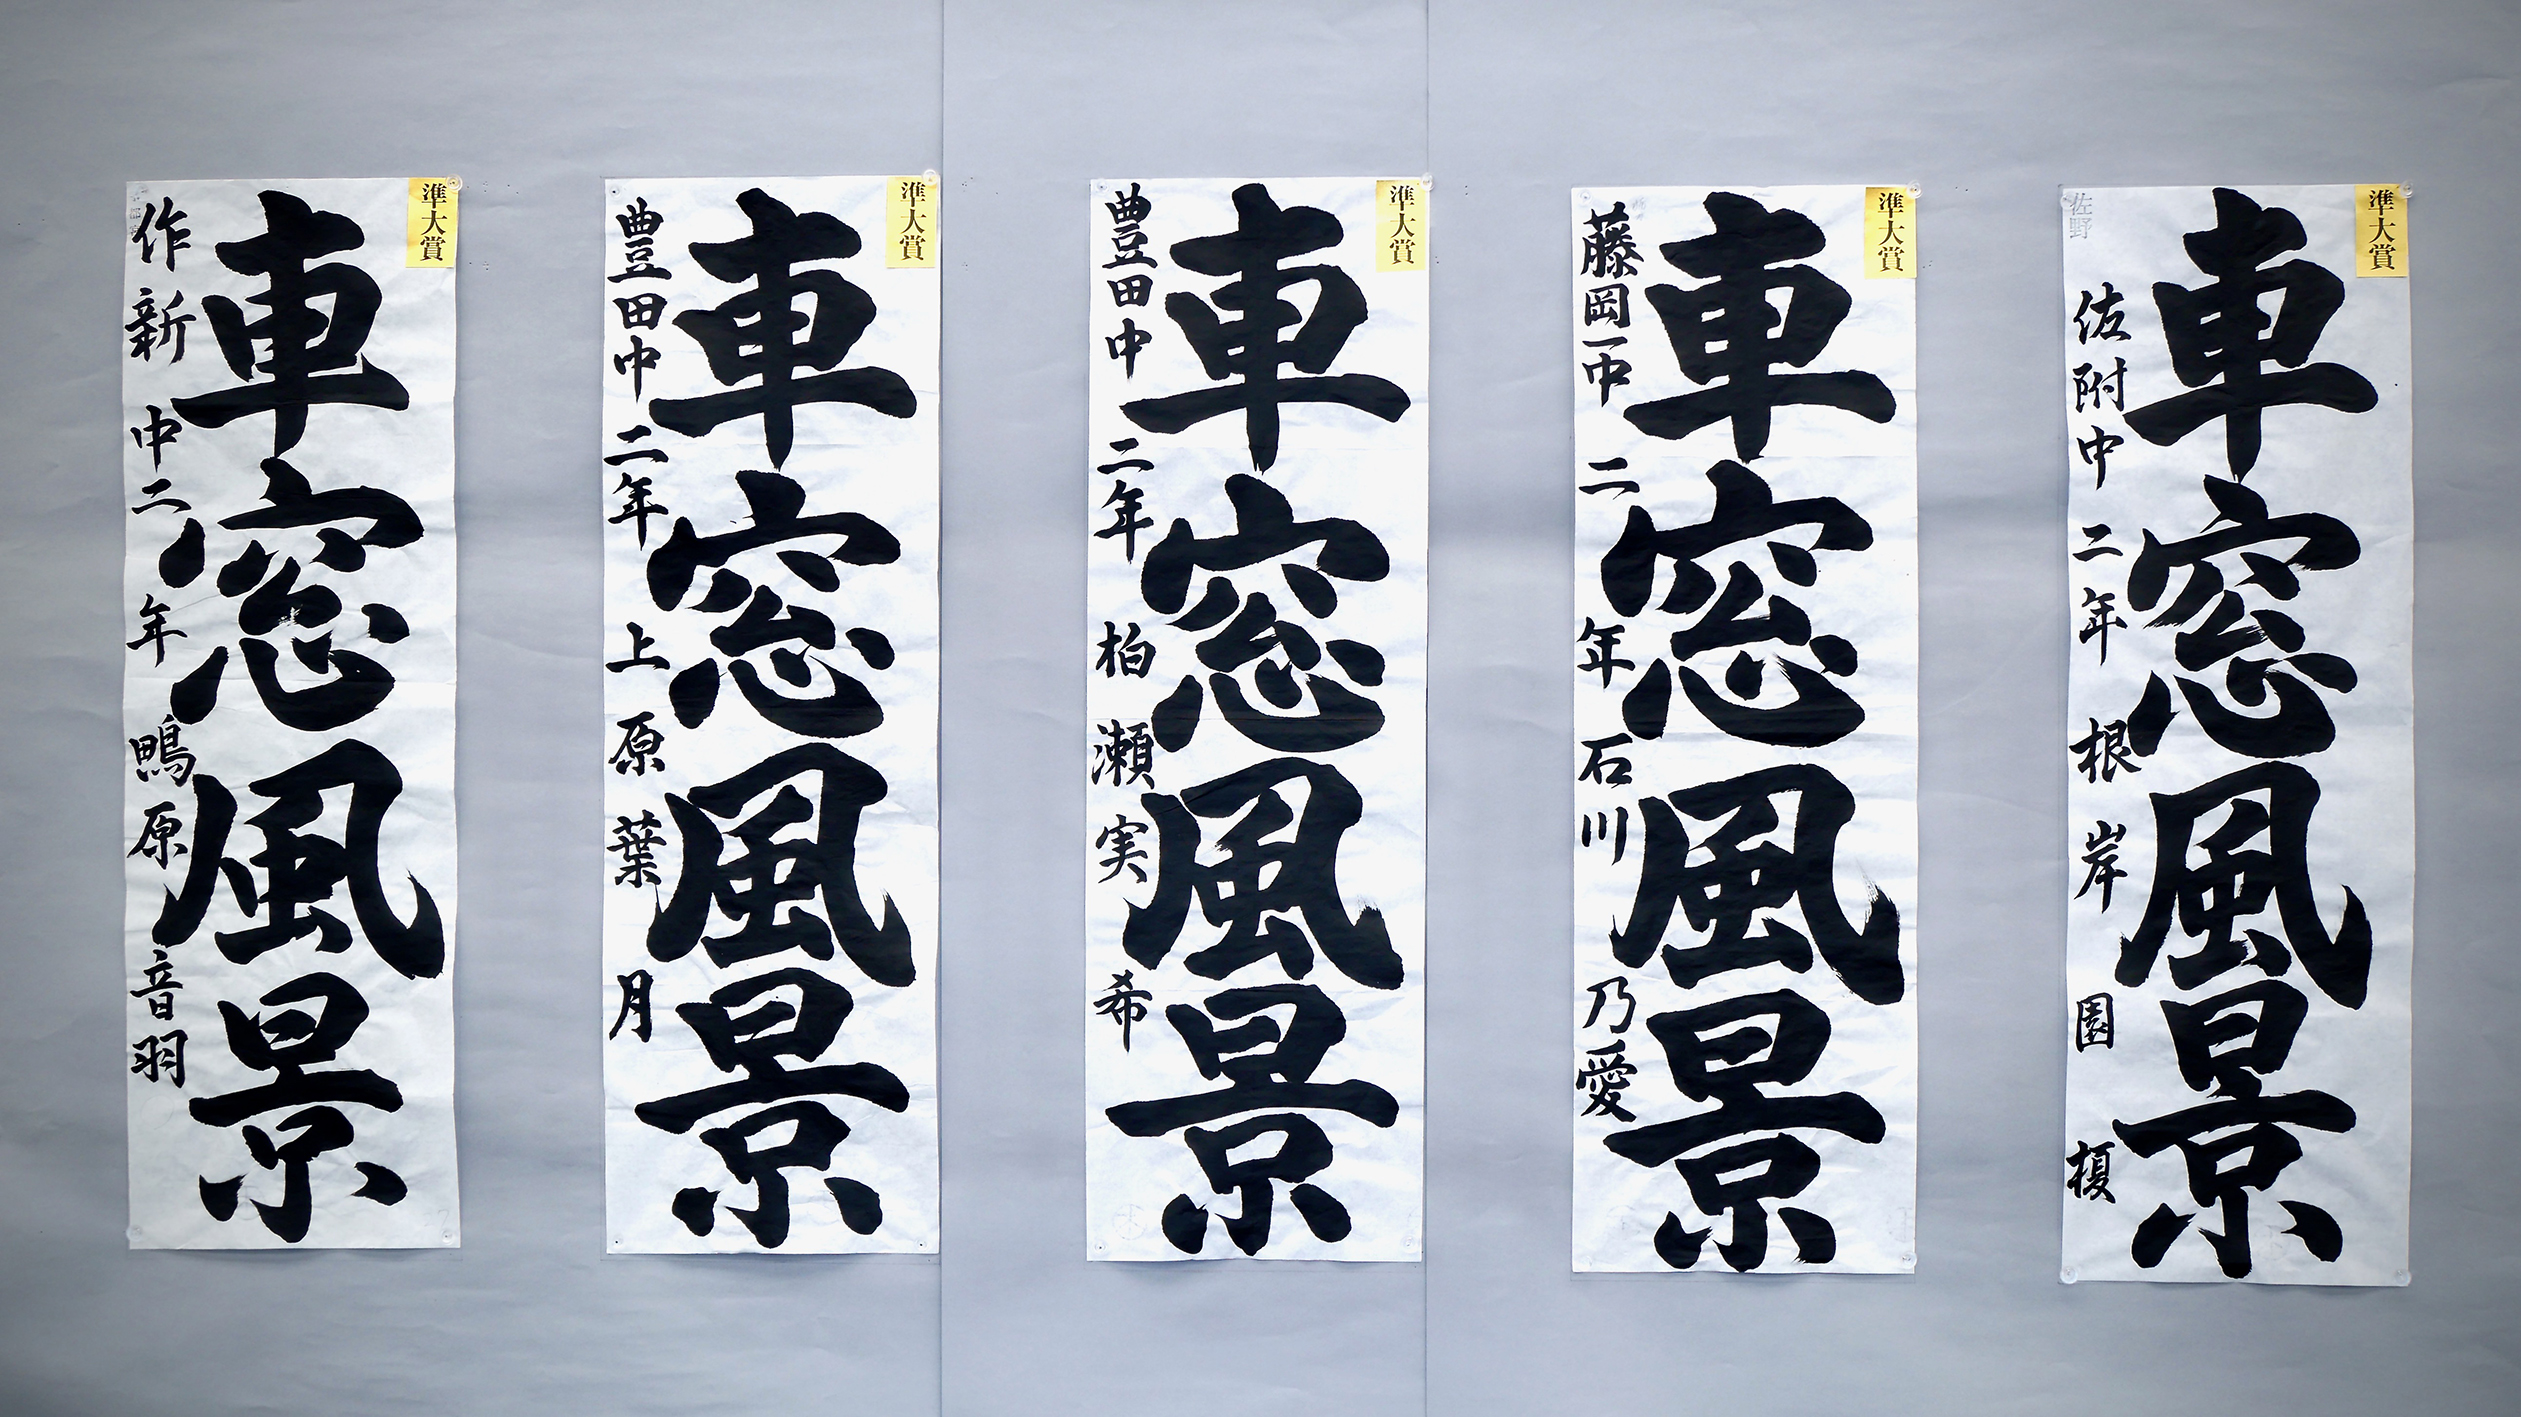 準大賞
車窓風景
佐附中二年根岸園榎
佐野
準大賞
車窓風景
藤岡一中二年石川乃愛
準大賞
車窓風景
豊田中二年柏瀬実希
準大賞
車窓風景
豊田中二年上原葉月
準大賞
車窓風景
作新中二年鴨原音羽